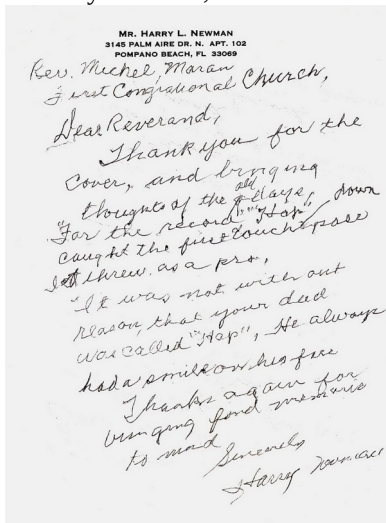 MR. HARRY L. NEWMAN
3145 PALM AIRE DR. N. APT. 102
POMPANO BEACH, FL 33069
Rev. Michel, Moran
First Congrational Church,
Dear Reverand,
Thank you for the
cover, and bringing
thoughts of the old days,
"For the record, "Hap"
caught the first touch down pase
I threw as a pro,
"It was not with out
reason that your dad
was called "Hap", He always
had a smile on his face
Thanks again for
bringing fond
to mind
Sincerely
Harry Newman